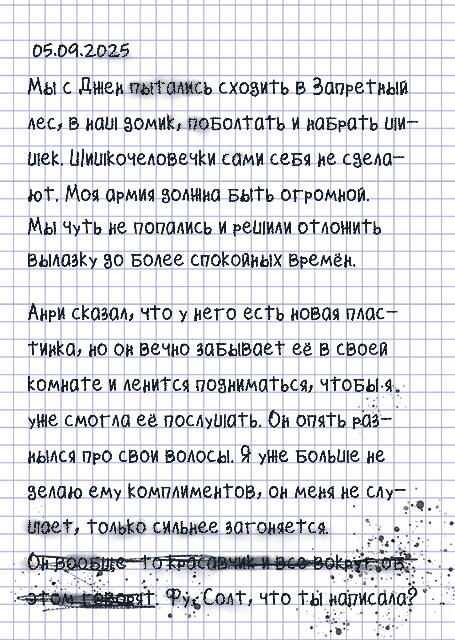 05.09.2025
Мы с Джен пытались сходить в Запретный
лес, в наш домик, поболтать и набрать ши-
шек. Шишкочеловечки сами себя не сдела-
ют. Моя армия должна быть огромной.
Мы чуть не попались и решили отложить
вылазку до более спокойных времён.
Анри сказал, что у него есть новая плас-
тинка, но он вечно забывает её в своей
комнате и ленится подниматься, чтобы я
уже смогла её послушать. Он опять раз-
нылся про свои волосы. Я уже больше не
делаю ему комплиментов, он меня не слу-
шает, только сильнее загоняется.
Он вообще то красавчик и все вокруг об
этом говорят. Фу, Солт, что ты написала?